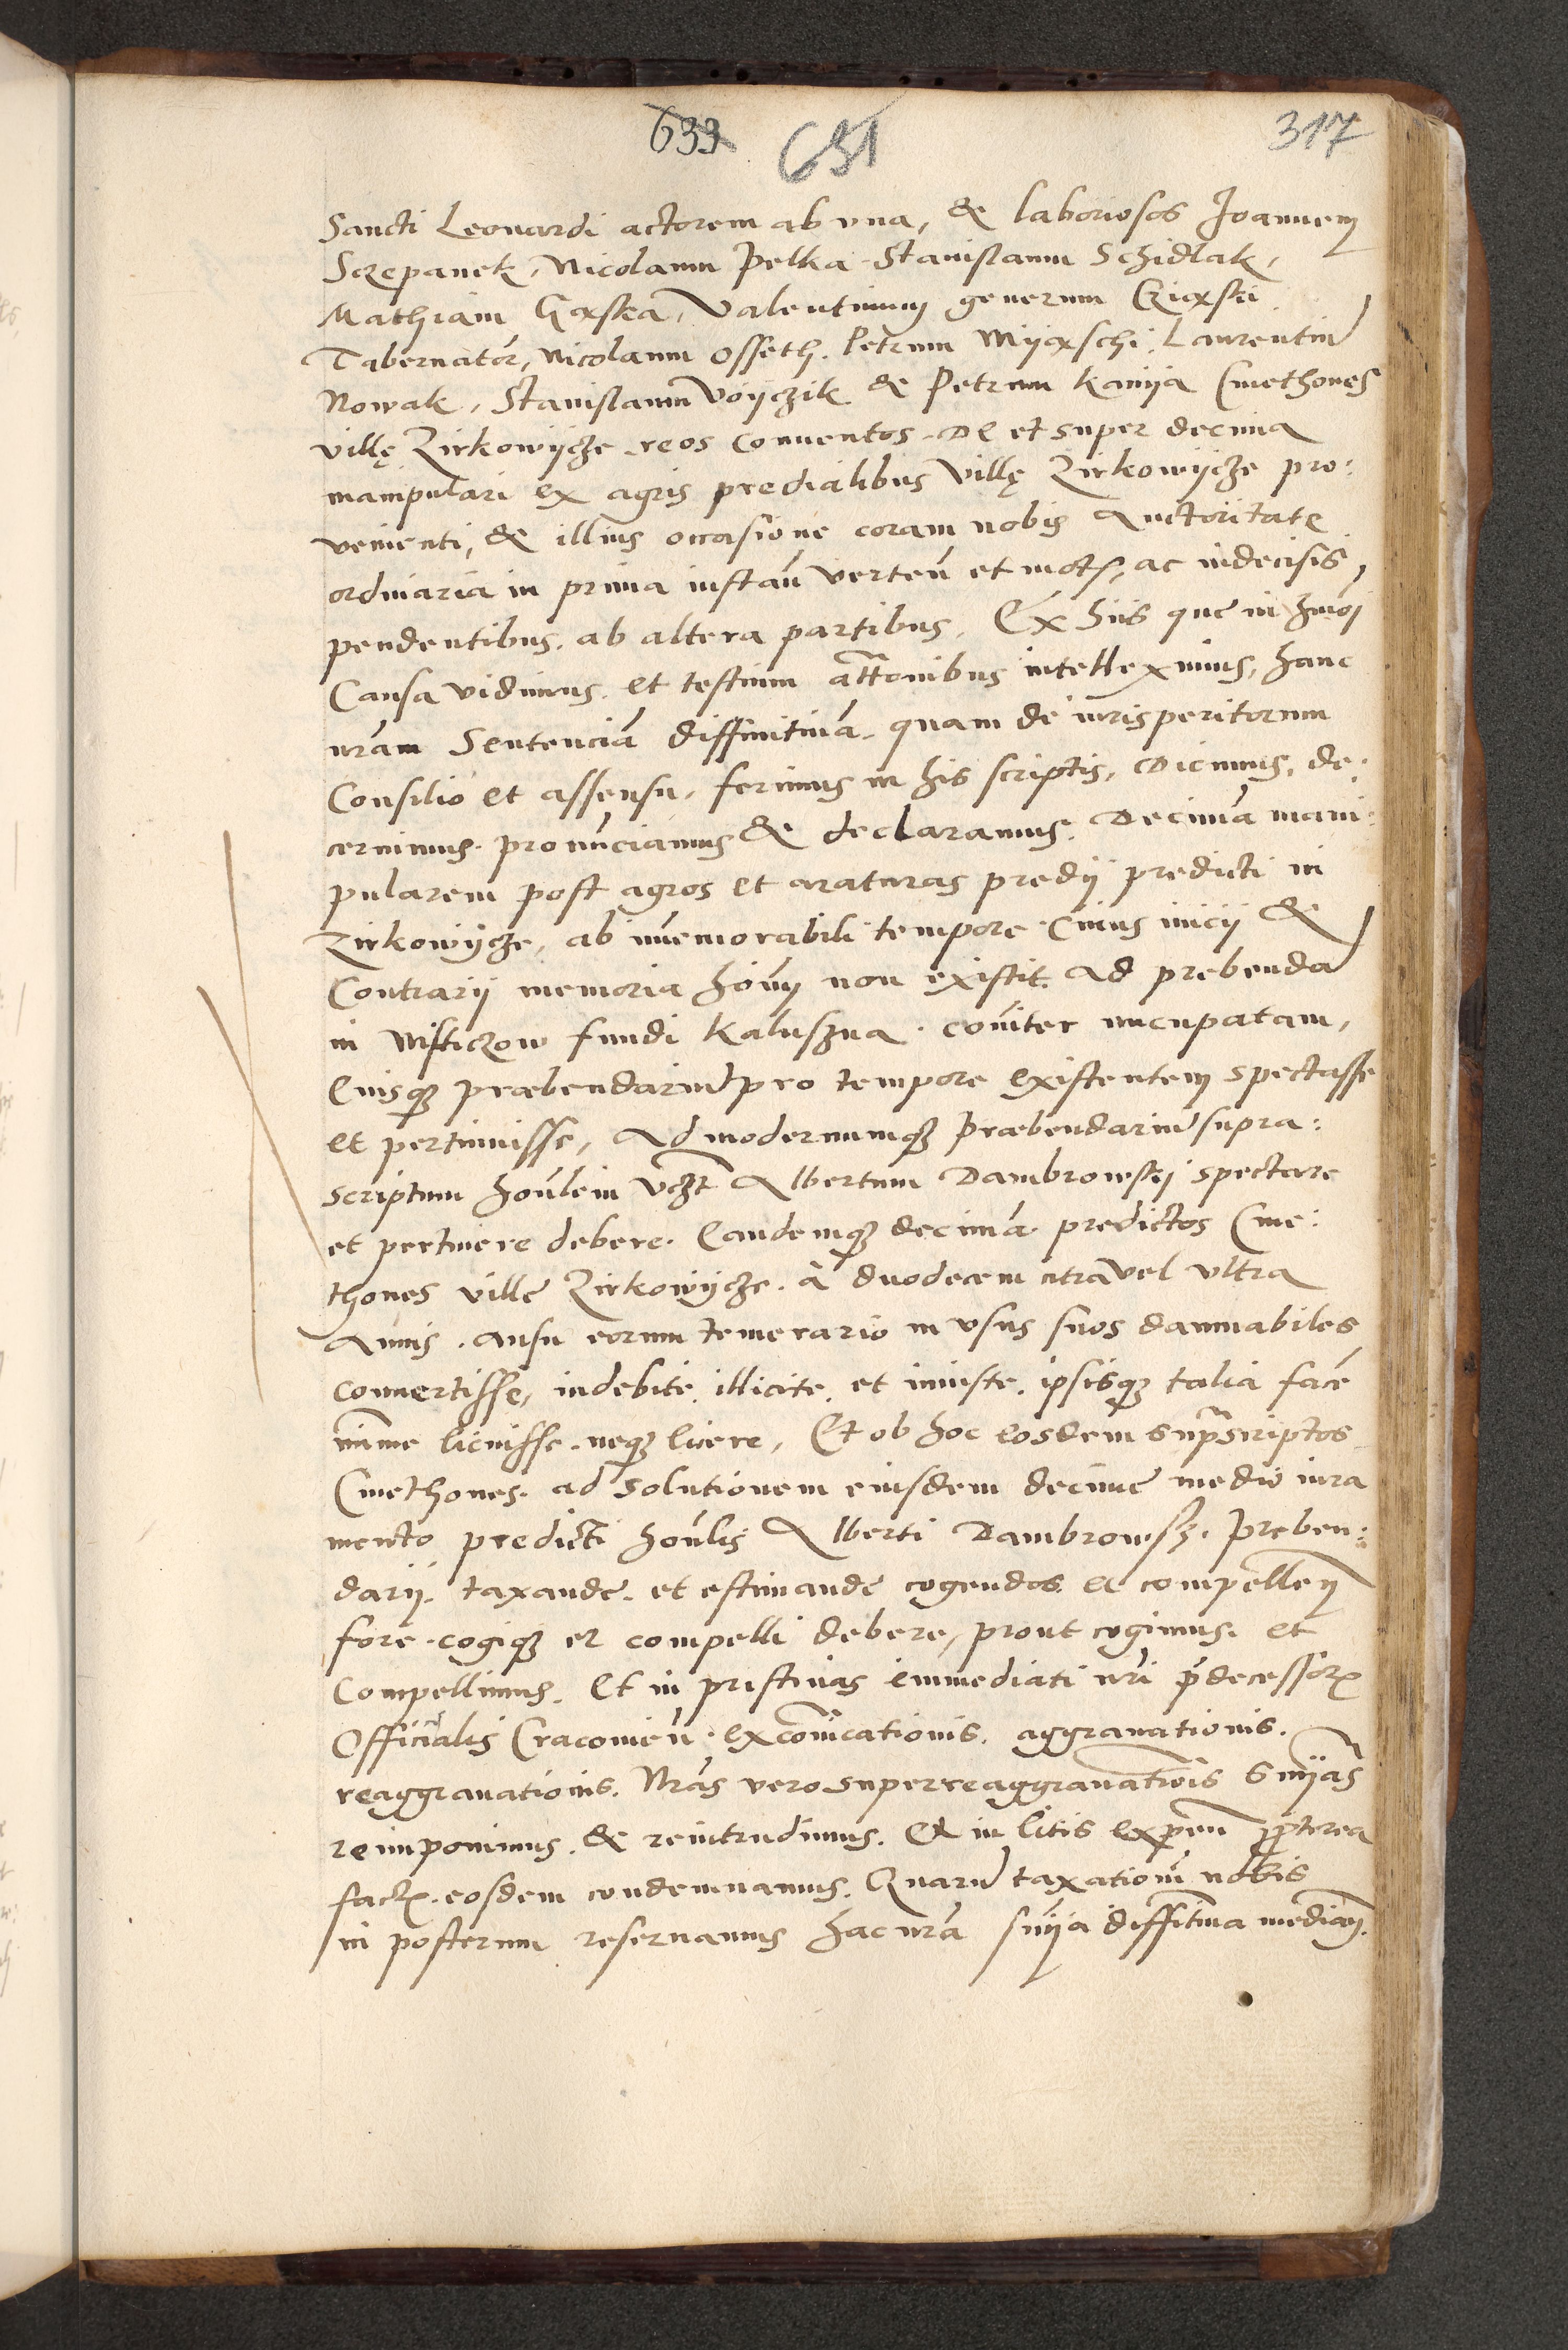 633 631 317
Sancti Leonardi actorem ab vna, & laboriosos Joannem
Sczepanek, Nicolaum Pelka Stanislaum Schidlak,
Mathiam Gąska, Valentinum generum
Tabernator̄, Nicolaum Osseth. Petrum Miiąschi. Laurentiū
Nowak, Stanislaum Voyczik & Petrum Kanija Cmethones
villę Zirkowijcze reos conuentos. De et super decima
manipulari ex agris predialibus villę Zirkowijcze pro:
venienti, & illius occasione coram nobis Auctoritate
ordinaria in prima instan̄ verten̄ et mot, ac indecisis
pendentibus. ab altera partibus. Ex hiis que in hmōi
Causa vidimus. et testium att̄onibus intelleximus, hanc
nr̄am Sentenciā diffinitiuā quam de iurisperitorum
Consilio et assensu, ferimus in his scriptis, Dicimus, de:
cernimus. pronūciamus & declaramus. Decimā mani:
pularem post agros et araturas predij predicti in
Zirkowijcze, ab immemorabili tempore Cuius inicij &
Contrarij memoria hōim non existit. ad prebendā
in Misticzow fundi Kaluszna. cōiter nuncupatam,
Eiusq₃ præbendariū pro tempore existentem spectasse
et pertinuisse, ad modernumq₃ præbendariū supra:
scriptum honūlem vz̄t Albertum Dambrowskj spectare
et pertinere debere. Eandemq₃ decimā. predictos Cme:
thones ville Zirkowijcze. à duodecem citra vel vltra
Annis. ausu eorum temerario in vsus suos damnabiles
conuertisse, indebite. illicite. et iniuste. ipsisq₃ talia facē
mīme licuisse. neq₃ licere, Et ob hoc eosdem supr̄ascriptos
Cmethones. ad solutionem eiusdem decime medio iura
mento predicti honūlis Alberti Dambrowsk. Preben:
darij. taxande. et estimande cogendos et compellen
fore. cogiq₃ et compelli debere, prout cogimus. et
Compellimus. Et in pristinas immediati nr̄i p̄decessor
Officialis Cracouien̄. excōicationis. aggrauationis.
reaggrauationis. Nr̄as vero superreaggrauat̄iōis s̄nijas
reimponimus. & reintrudimus. Et in litis expen̄ p̄pterea
fact. eosdem condemnamus. Quarū taxationē nobis
in posterum reseruamus hac nr̄a sn̄ija diffit̄iua median̄.